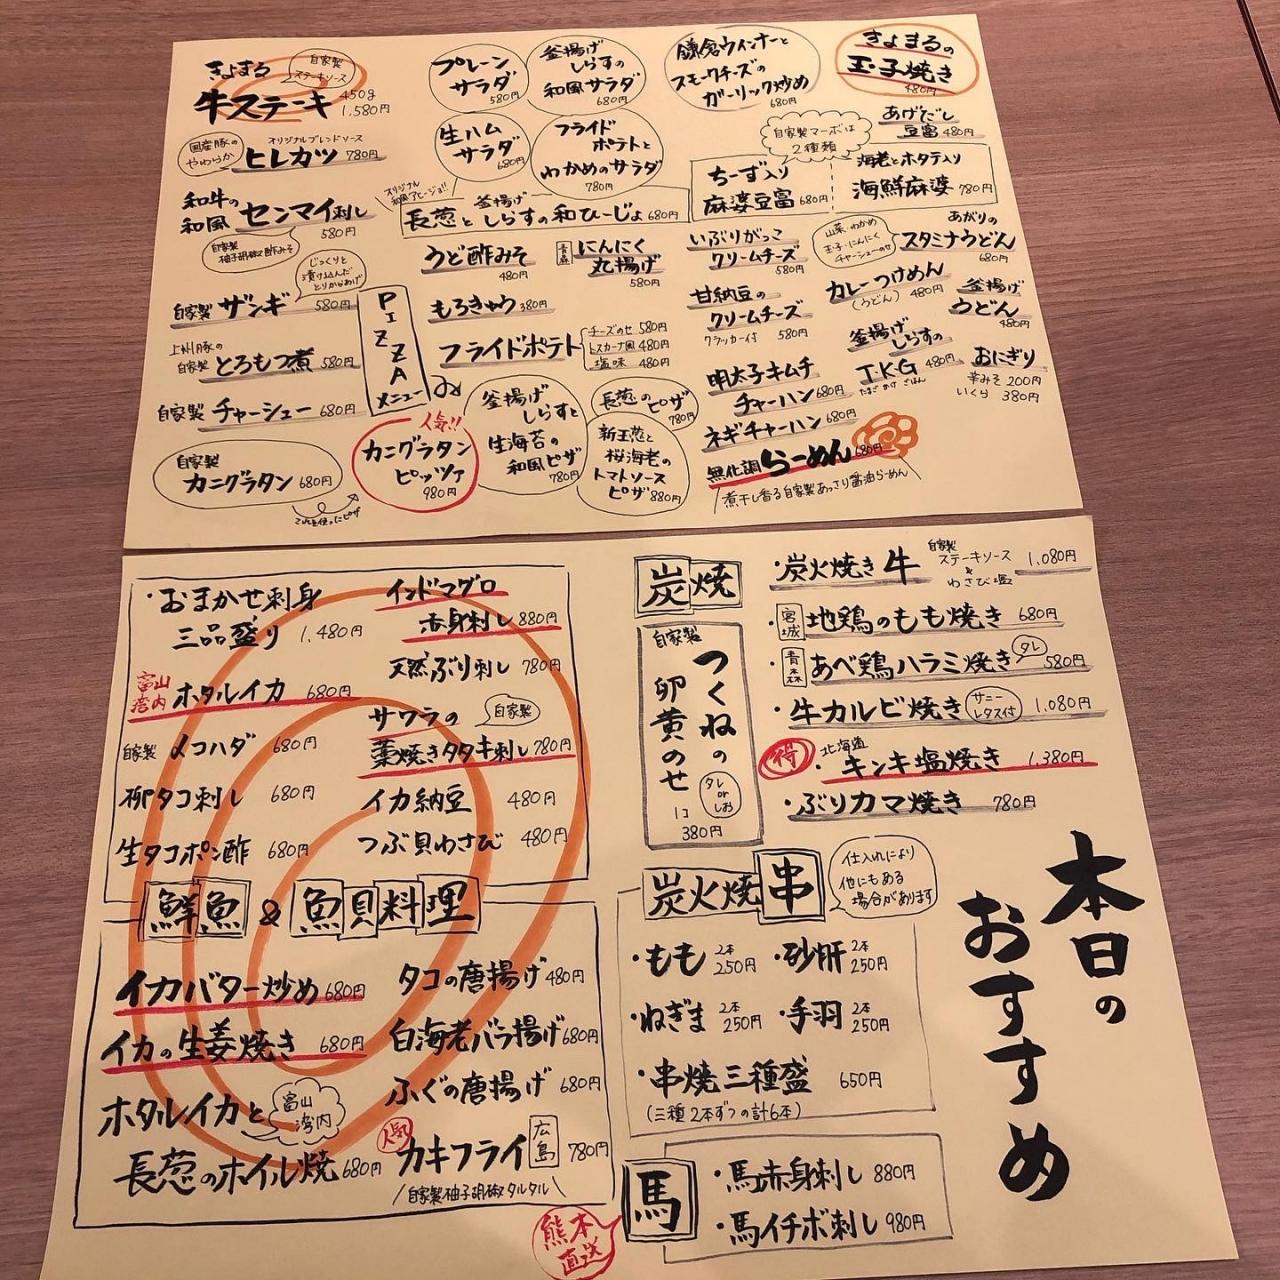 きよまる
牛ステーキ 450g 1,580円
自家製
ステーキソース
国産豚の
やわらか
オリジナルブレンドソース
ヒレカツ 780円
和牛の
和風 センマイ刺し
580円
自家製
柚子胡椒酢みそ
じっくりと
漬け込んだ
とりからあげ
自家製 ザンギ 580円
上州豚の
自家製 とろもつ煮 580円
自家製 チャーシュー 680円
自家製
カニグラタン 680円
これを使ったピザ
プレーン
サラダ
580円
釜揚げ
しらすの
和風サラダ
680円
生ハム
サラダ
680円
フライド
ポテトと
わかめのサラダ
780円
オリジナル
和風アヒージョ!!
長葱と釜揚げしらすの和ひーじょ 680円
うど酢みそ
480円
青森
にんにく
丸揚げ
580円
もろきゅう 380円
フライドポテト
チーズのせ 580円
トスカーナ風 480円
塩味 480円
PIZZA
メニュー
人気!!
カニグラタン
ピッツァ
980円
釜揚げ
しらすと
生海苔の
和風ピザ
780円
長葱のピザ
780円
新玉葱と
桜海老の
トマトソース
ピザ 880円
鎌倉ウインナーと
スモークチーズの
ガーリック炒め
680円
きよまるの
玉子焼き
480円
あげだし
豆富 480円
自家製マーボは
2種類
ちーず入り
麻婆豆富 680円
海老とホタテ入り
海鮮麻婆 780円
いぶりがっこ
クリームチーズ
580円
山菜・わかめ
玉子・にんにく
チャーシューのせ
あがりの
スタミナうどん
680円
甘納豆の
クリームチーズ
クラッカー付 580円
カレーつけめん
(うどん) 480円
釜揚げ
うどん
480円
明太子キムチ
チャーハン 680円
釜揚げ
しらすの
T.K.G 480円
たまご かけ ごはん
おにぎり
辛みそ 200円
いくら 380円
ネギチャーハン 680円
無化調 らーめん 680円
煮干し香る自家製あっさり醤油らーめん
・おまかせ刺身
三品盛り 1,480円
富山
湾内 ホタルイカ 680円
自家製 〆コハダ 680円
柳タコ刺し 680円
生タコポン酢 680円
インドマグロ
赤身刺し 880円
天然ぶり刺し 780円
サワラの 自家製
藁焼きタタキ刺し 780円
イカ納豆 480円
つぶ貝わさび 480円
鮮魚 & 魚貝料理
イカバター炒め 680円
イカの生姜焼き 680円
ホタルイカと
富山
湾内
長葱のホイル焼 680円
タコの唐揚げ 480円
白海老バラ揚げ 680円
ふぐの唐揚げ 680円
人気
カキフライ 広島 780円
自家製柚子胡椒タルタル
炭焼
自家製
つくねの
卵黄のせ
タレ
or
しお
1コ
380円
・炭火焼き牛
自家製
ステーキソース
&
わさび塩
1,080円
・宮城 地鶏のもも焼き 680円
・青森 あべ鶏ハラミ焼き タレ 580円
・牛カルビ焼き サニーレタス付 1,080円
得
・北海道
キンキ塩焼き 1,380円
・ぶりカマ焼き 780円
炭火焼 串
仕入れにより
他にもある
場合があります
・もも 2本 250円
・砂肝 2本 250円
・ねぎま 2本 250円
・手羽 2本 250円
・串焼三種盛 650円
(三種 2本ずつの計6本)
馬
熊本
直送
・馬赤身刺し 880円
・馬イチボ刺し 980円
本日の
おすすめ